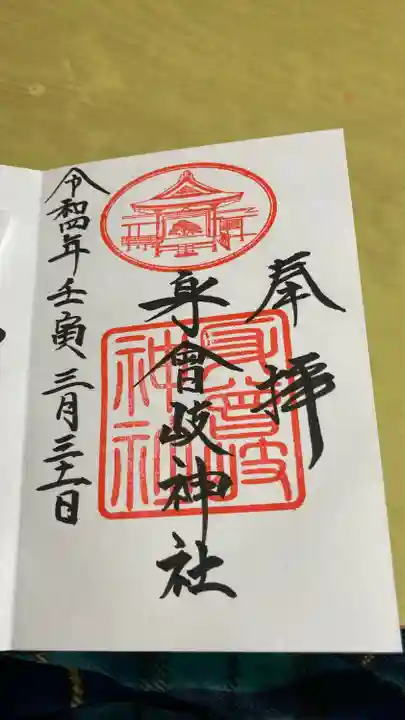 奉拝
身曾岐神社
令和四年壬寅三月三十一日
身曾岐
神社